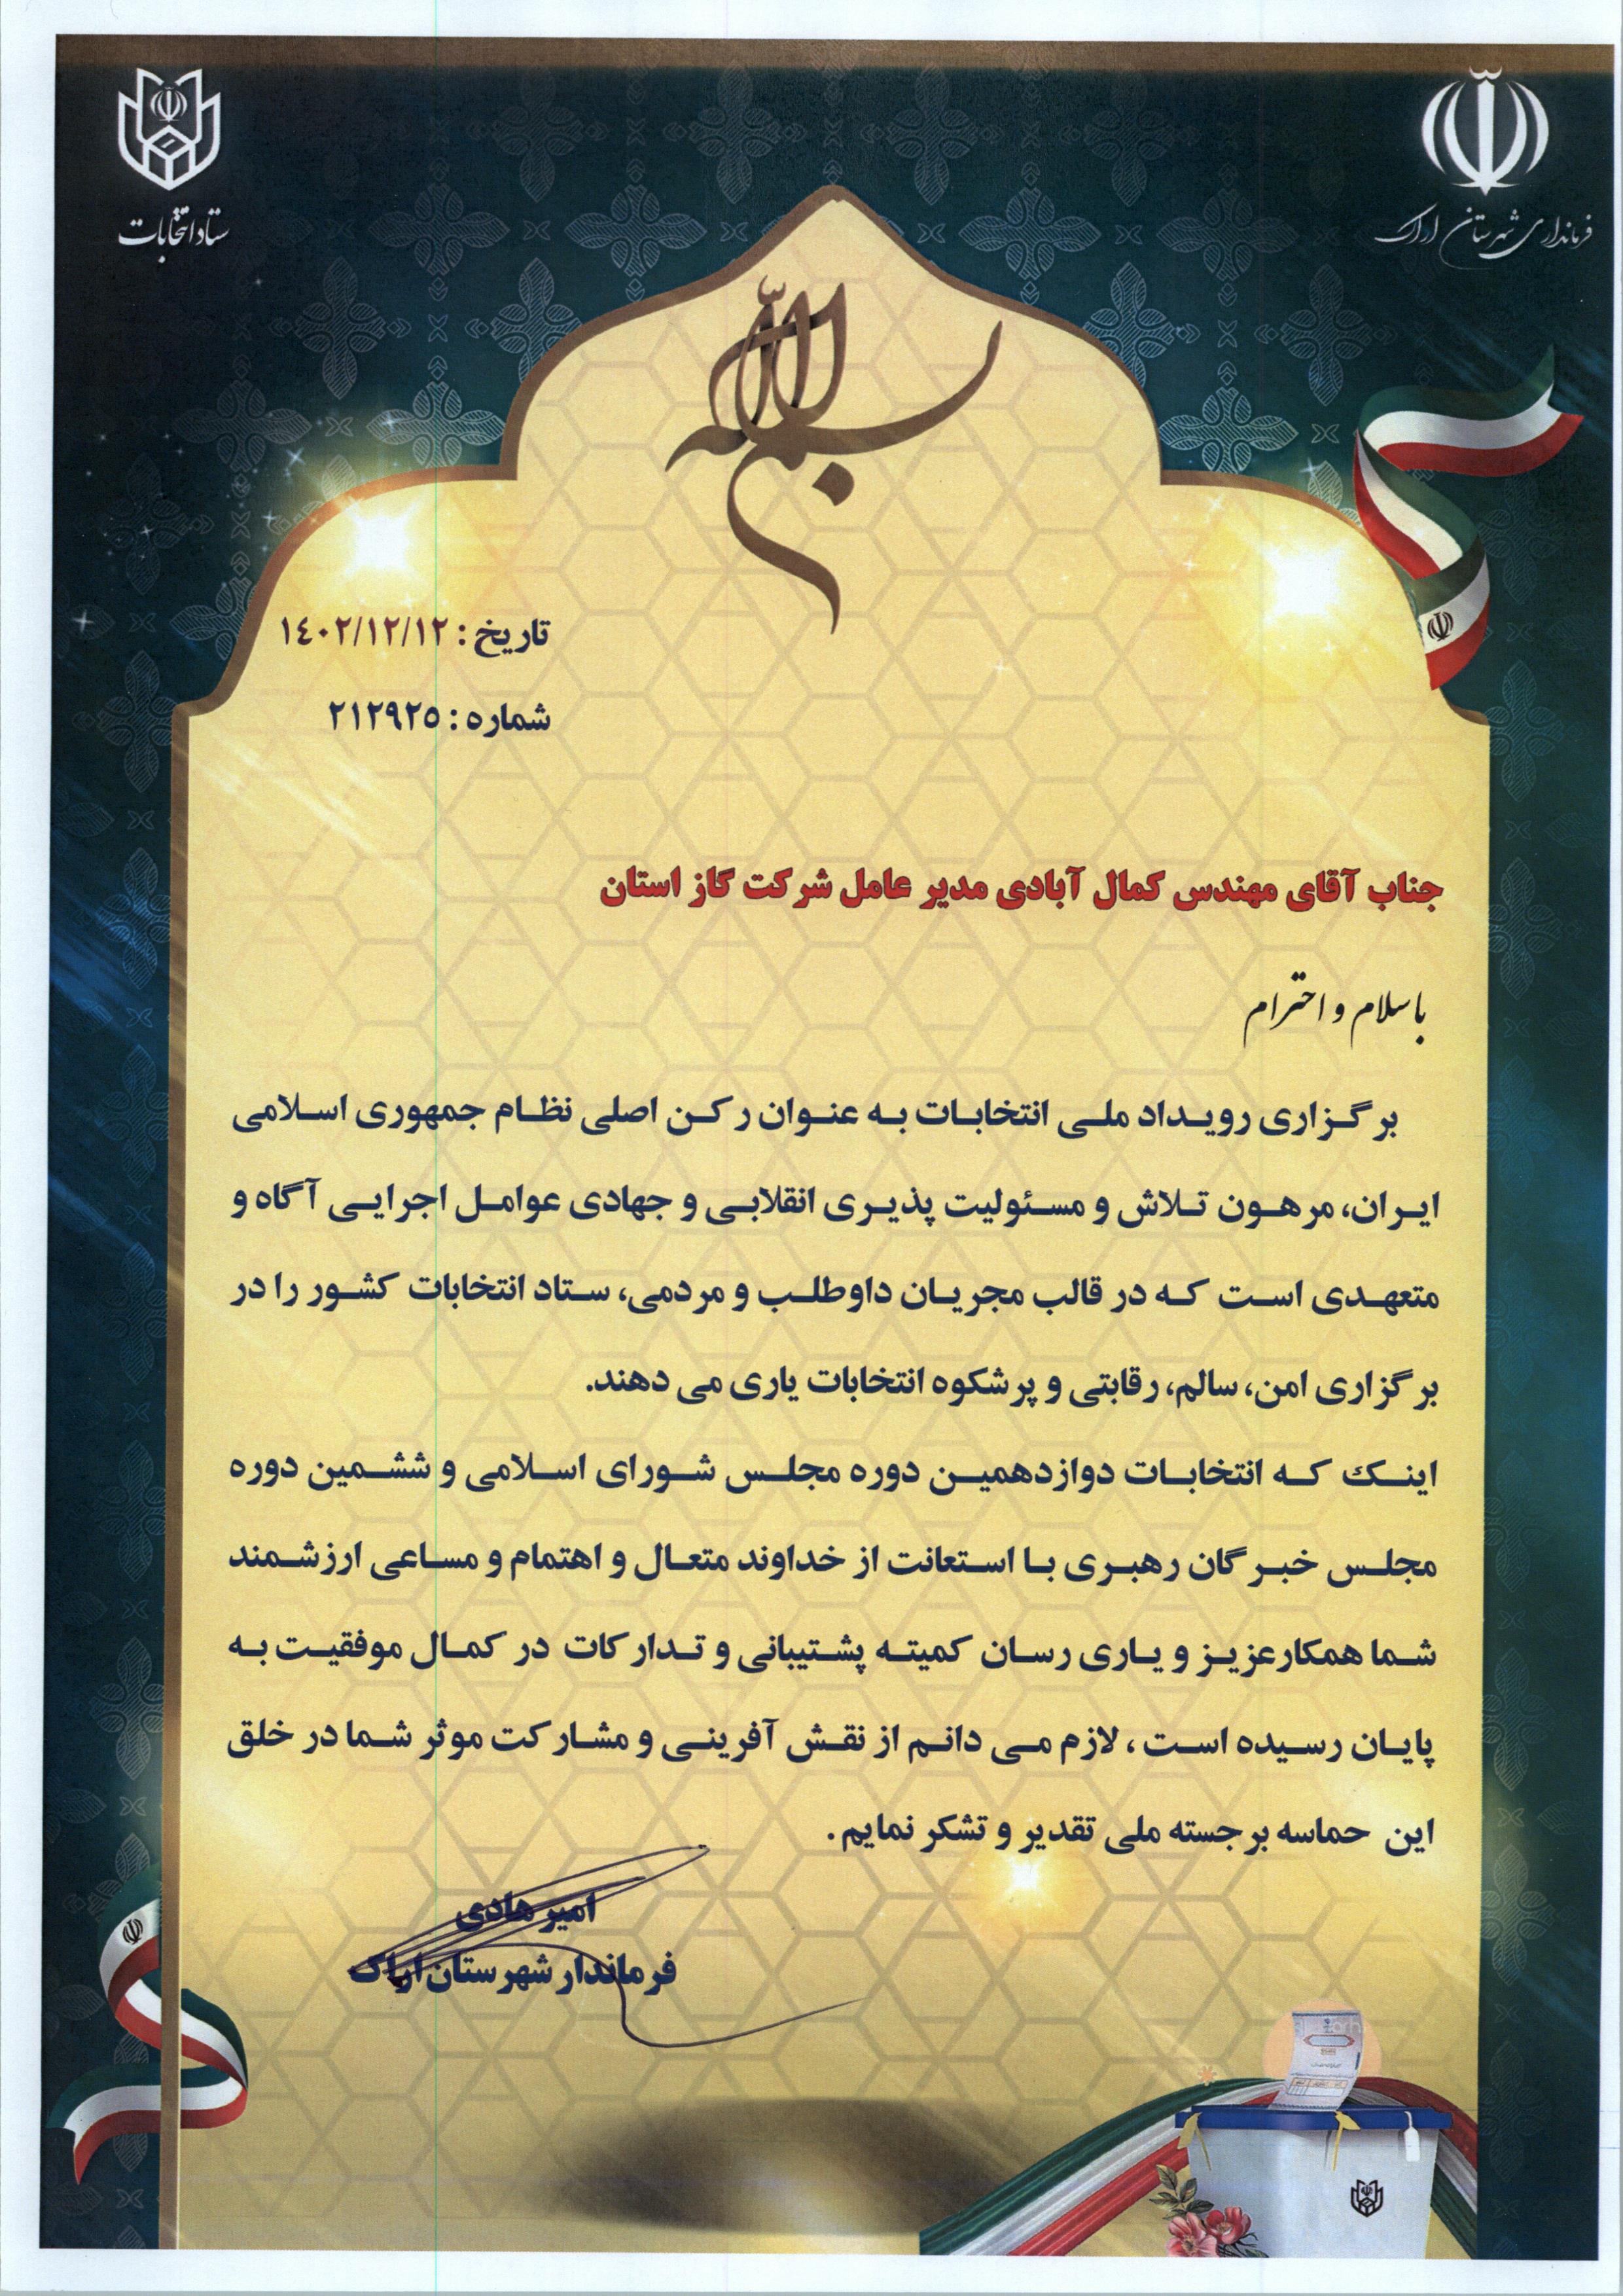 فرمانداری شهرستان اراک
ستاد انتخابات
بسم الله
تاریخ : ۱۴۰۲/۱۲/۱۲
شماره : ۲۱۲۹۲۵
جناب آقای مهندس کمال آبادی مدیر عامل شرکت گاز استان
با سلام و احترام
برگزاری رویداد ملی انتخابات به عنوان رکن اصلی نظام جمهوری اسلامی
ایران، مرهون تلاش و مسئولیت پذیری انقلابی و جهادی عوامل اجرایی آگاه و
متعهدی است که در قالب مجریان داوطلب و مردمی، ستاد انتخابات کشور را در
برگزاری امن، سالم، رقابتی و پرشکوه انتخابات یاری می دهند.
اینک که انتخابات دوازدهمین دوره مجلس شورای اسلامی و ششمین دوره
مجلس خبرگان رهبری با استعانت از خداوند متعال و اهتمام و مساعی ارزشمند
شما همکارعزیز و یاری رسان کمیته پشتیبانی و تدارکات در کمال موفقیت به
پایان رسیده است ، لازم می دانم از نقش آفرینی و مشارکت موثر شما در خلق
این حماسه برجسته ملی تقدیر و تشکر نمایم .
امیر هادی
فرماندار شهرستان اراک